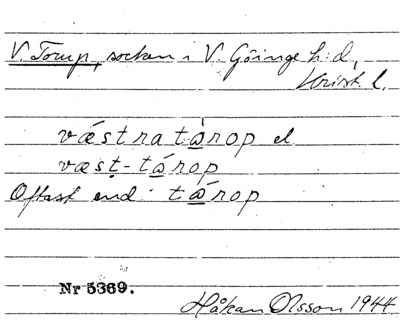 V. Torup, socken i V. Göinge h:d,
Krist. l.
vǽstra tà̱rop el.
væsṭ-tá̱rop
Oftast end. tá̱rop
Nr 5369.
Håkan Olsson 1944